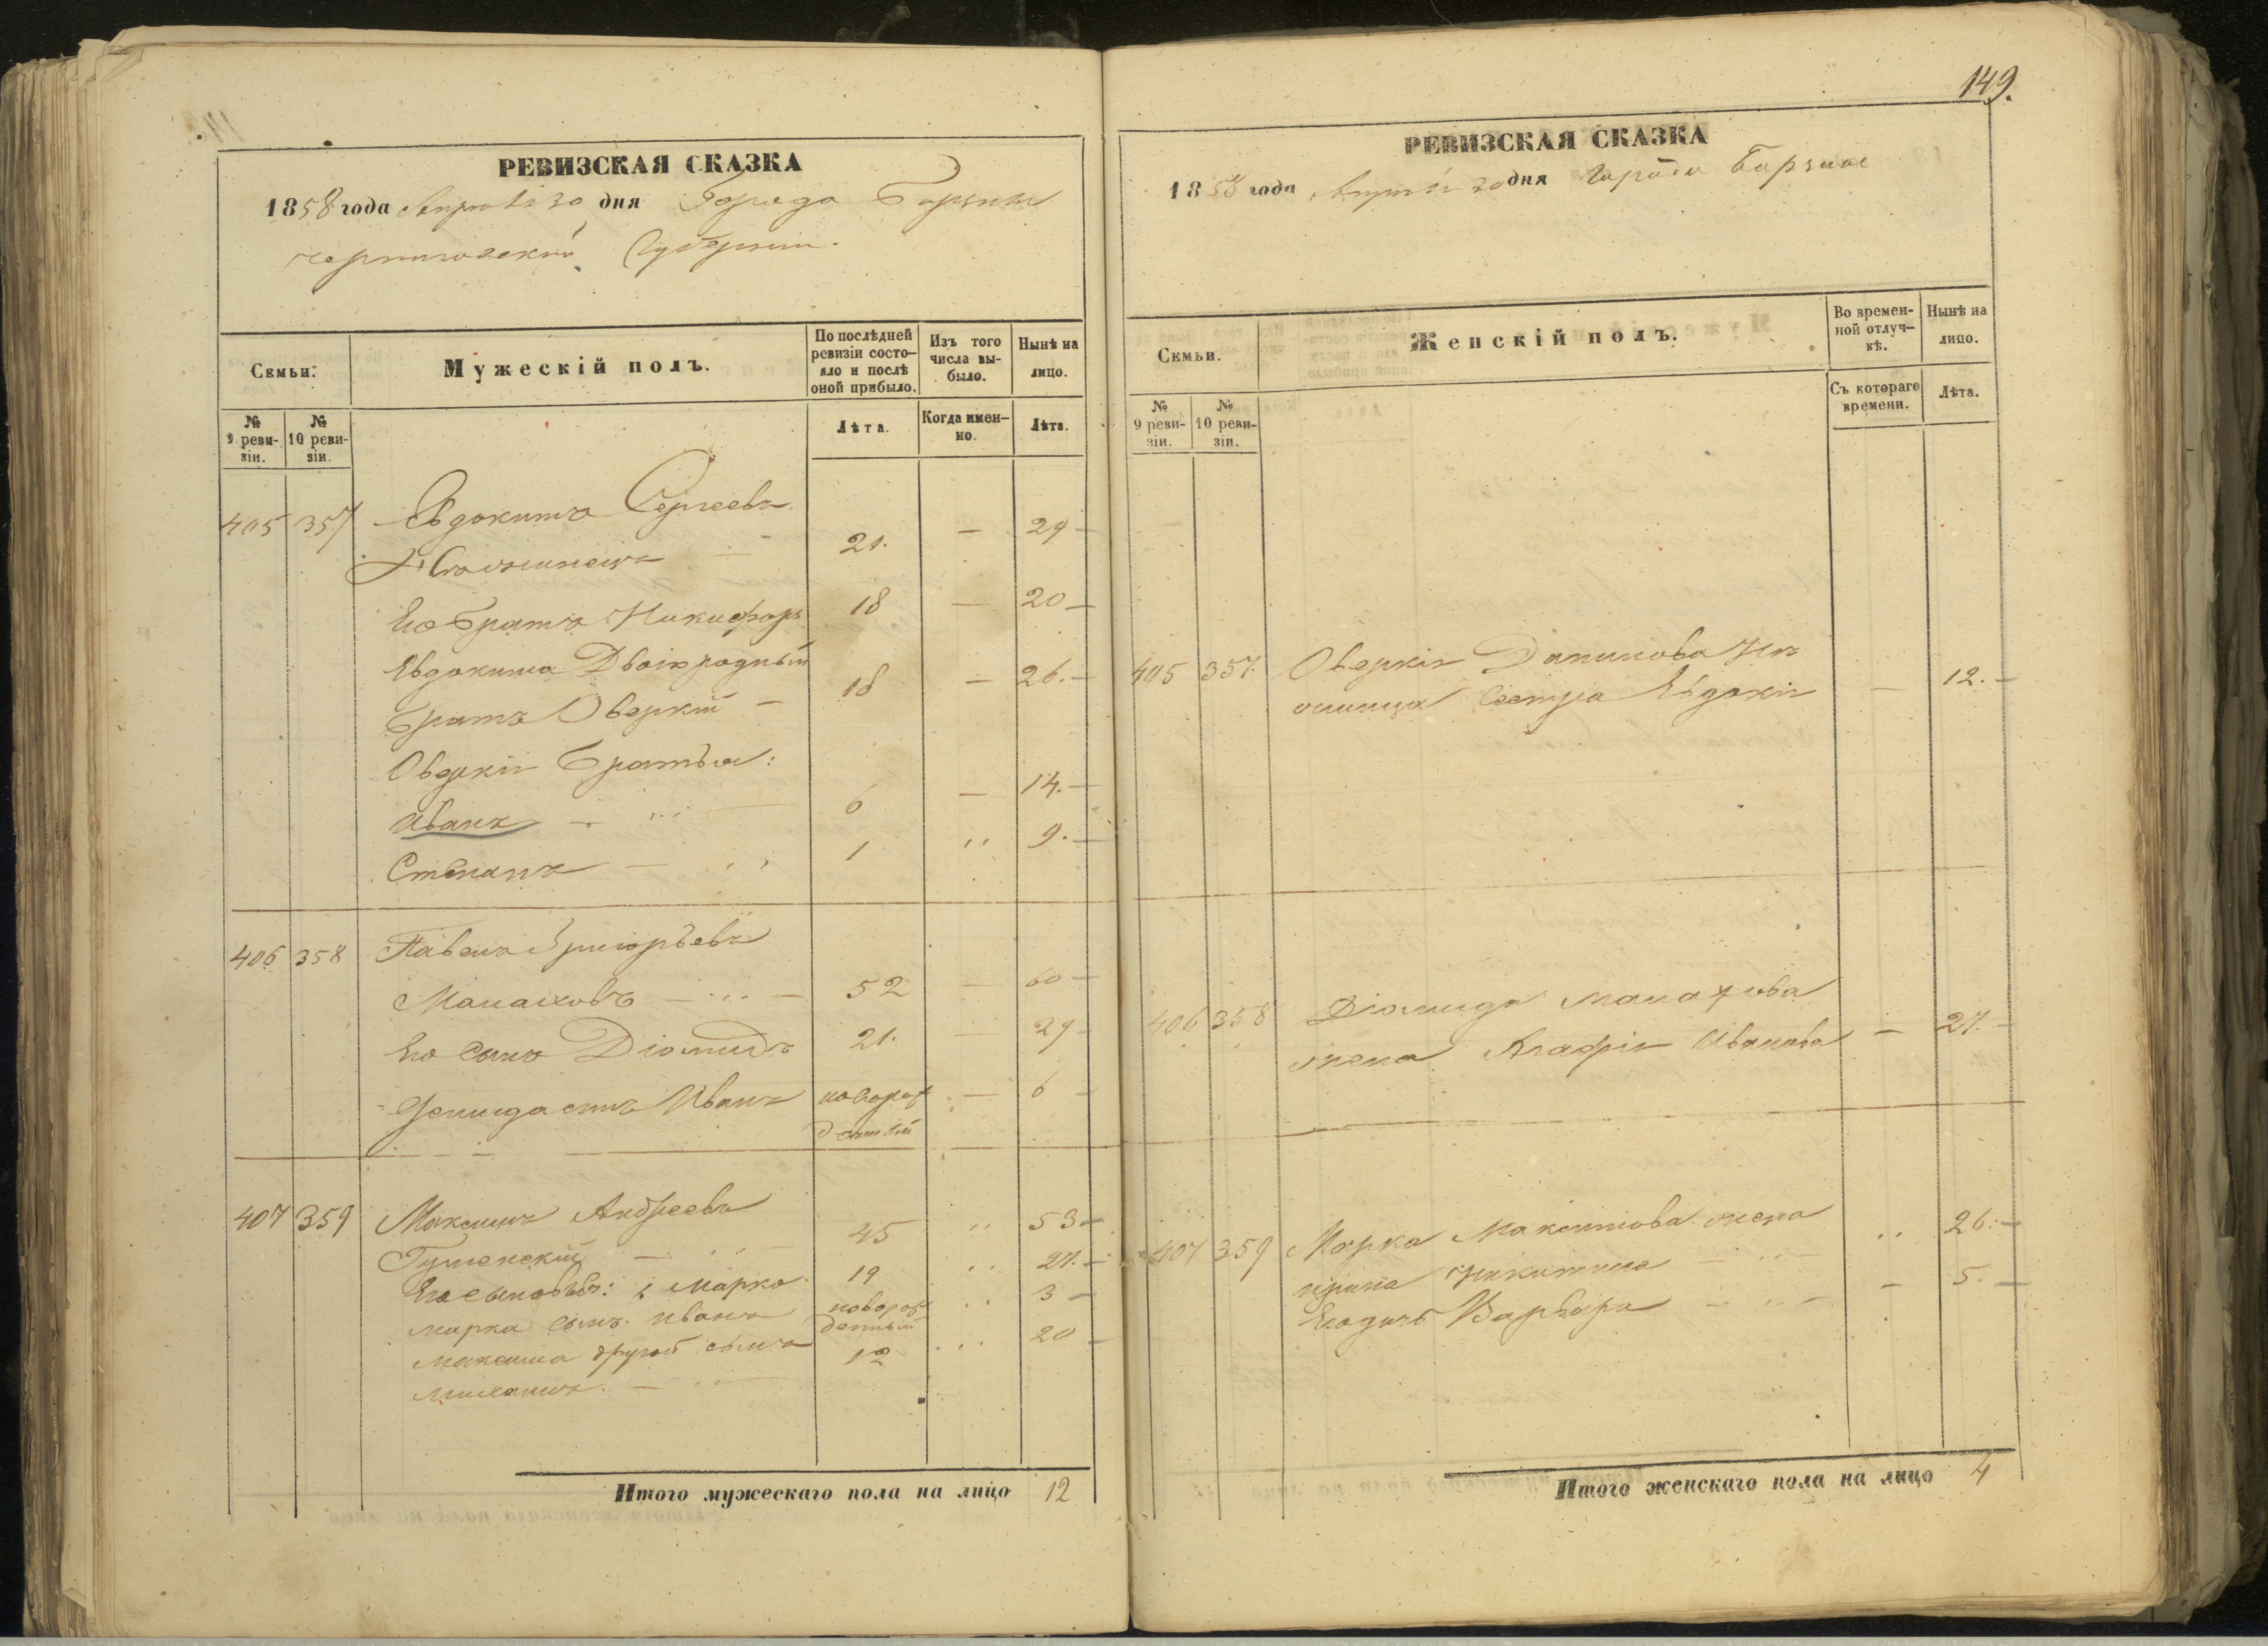 РЕВИЗСКАЯ СКАЗКА
1858 года Апреля 30 дня Города Борзны
Черниговской Губернии.
Семьи.
Мужескій полъ.
По послѣдней ревизіи состо-
яло и послѣ
оной прибыло.
Изъ того
числа вы-
было.
Нынѣ на
лицо.
№
9 реви-
зіи.
№
10 реви-
зіи.
Лѣта.
Когда имен-
но.
Лѣта.
405 357 Евдокимъ Сергеевъ
21. — 29 —
Его братъ Никифоръ 18 — 20 —
Евдокима Двоюродный
братъ Оверкій — 18 — 26. —
Оверкія братья:
Иванъ — 6 — 14. —
Степанъ — 1 " 9. —
406 358 Павелъ Григорьевъ
Малаховъ — 52 — 60 —
Его сынъ Діомидъ 21. — 29 —
Демида сынъ Иванъ новорож
денный — 6 —
407 359 Максимъ Андреевъ
Гуменскій — 45 " 53 —
Его сыновья: 1, Марко 19 " 27. —
Марка сынъ Иванъ новорож
денный " 3 —
Максима другой сынъ
Михаилъ — 12 " 20 —
Итого мужескаго пола на лицо 12
149.
РЕВИЗСКАЯ СКАЗКА
1858 года Апреля 30 дня Города Борзны
Семьи.
Женскій полъ.
Во времен-
ной отлуч-
кѣ.
Нынѣ на
лицо.
№
9 реви-
зіи.
№
10 реви-
зіи.
Съ котораго
времени.
Лѣта.
405 357. Оверкія Данилова
сестра Евдокія — 12. —
406 358 Діомида Малахова
жена Агафія Иванова — 27. —
407 359 Марка Максимова жена
Ирина Никитина " 26. —
Его дочь Варвара — 5. —
Итого женскаго пола на лицо 4